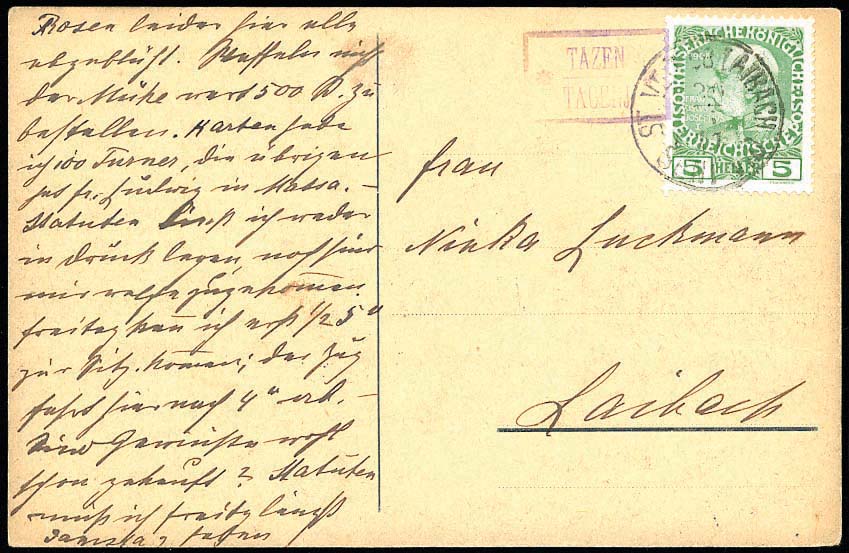 Rosen leider hier alle
abgeblüht. Waffeln nicht
der Mühe wert 500 St. zu
bestellen. Karten habe
ich 100 Turner, die übrigen
hat fr. Ludwig in
Statuten ließ ich weder
in Druck legen, noch sind
mir welche zugekommen.
Freitag kann ich erst 1/2 5h
zur Sitz. kommen; der Zug
fährt hier nach 4h ab. –
Sind Gewinste wohl
schon gekauft? Statuten
muß ich Freitg längst
Samstag haben
TAZEN
TACENJ
ST. VEIT OB LAIBACH
KAISERLICHE KÖNIGLICHE ÖSTERREICHISCHE POST
5 HELLER 5
Frau
Ninka Luckmann
Laibach